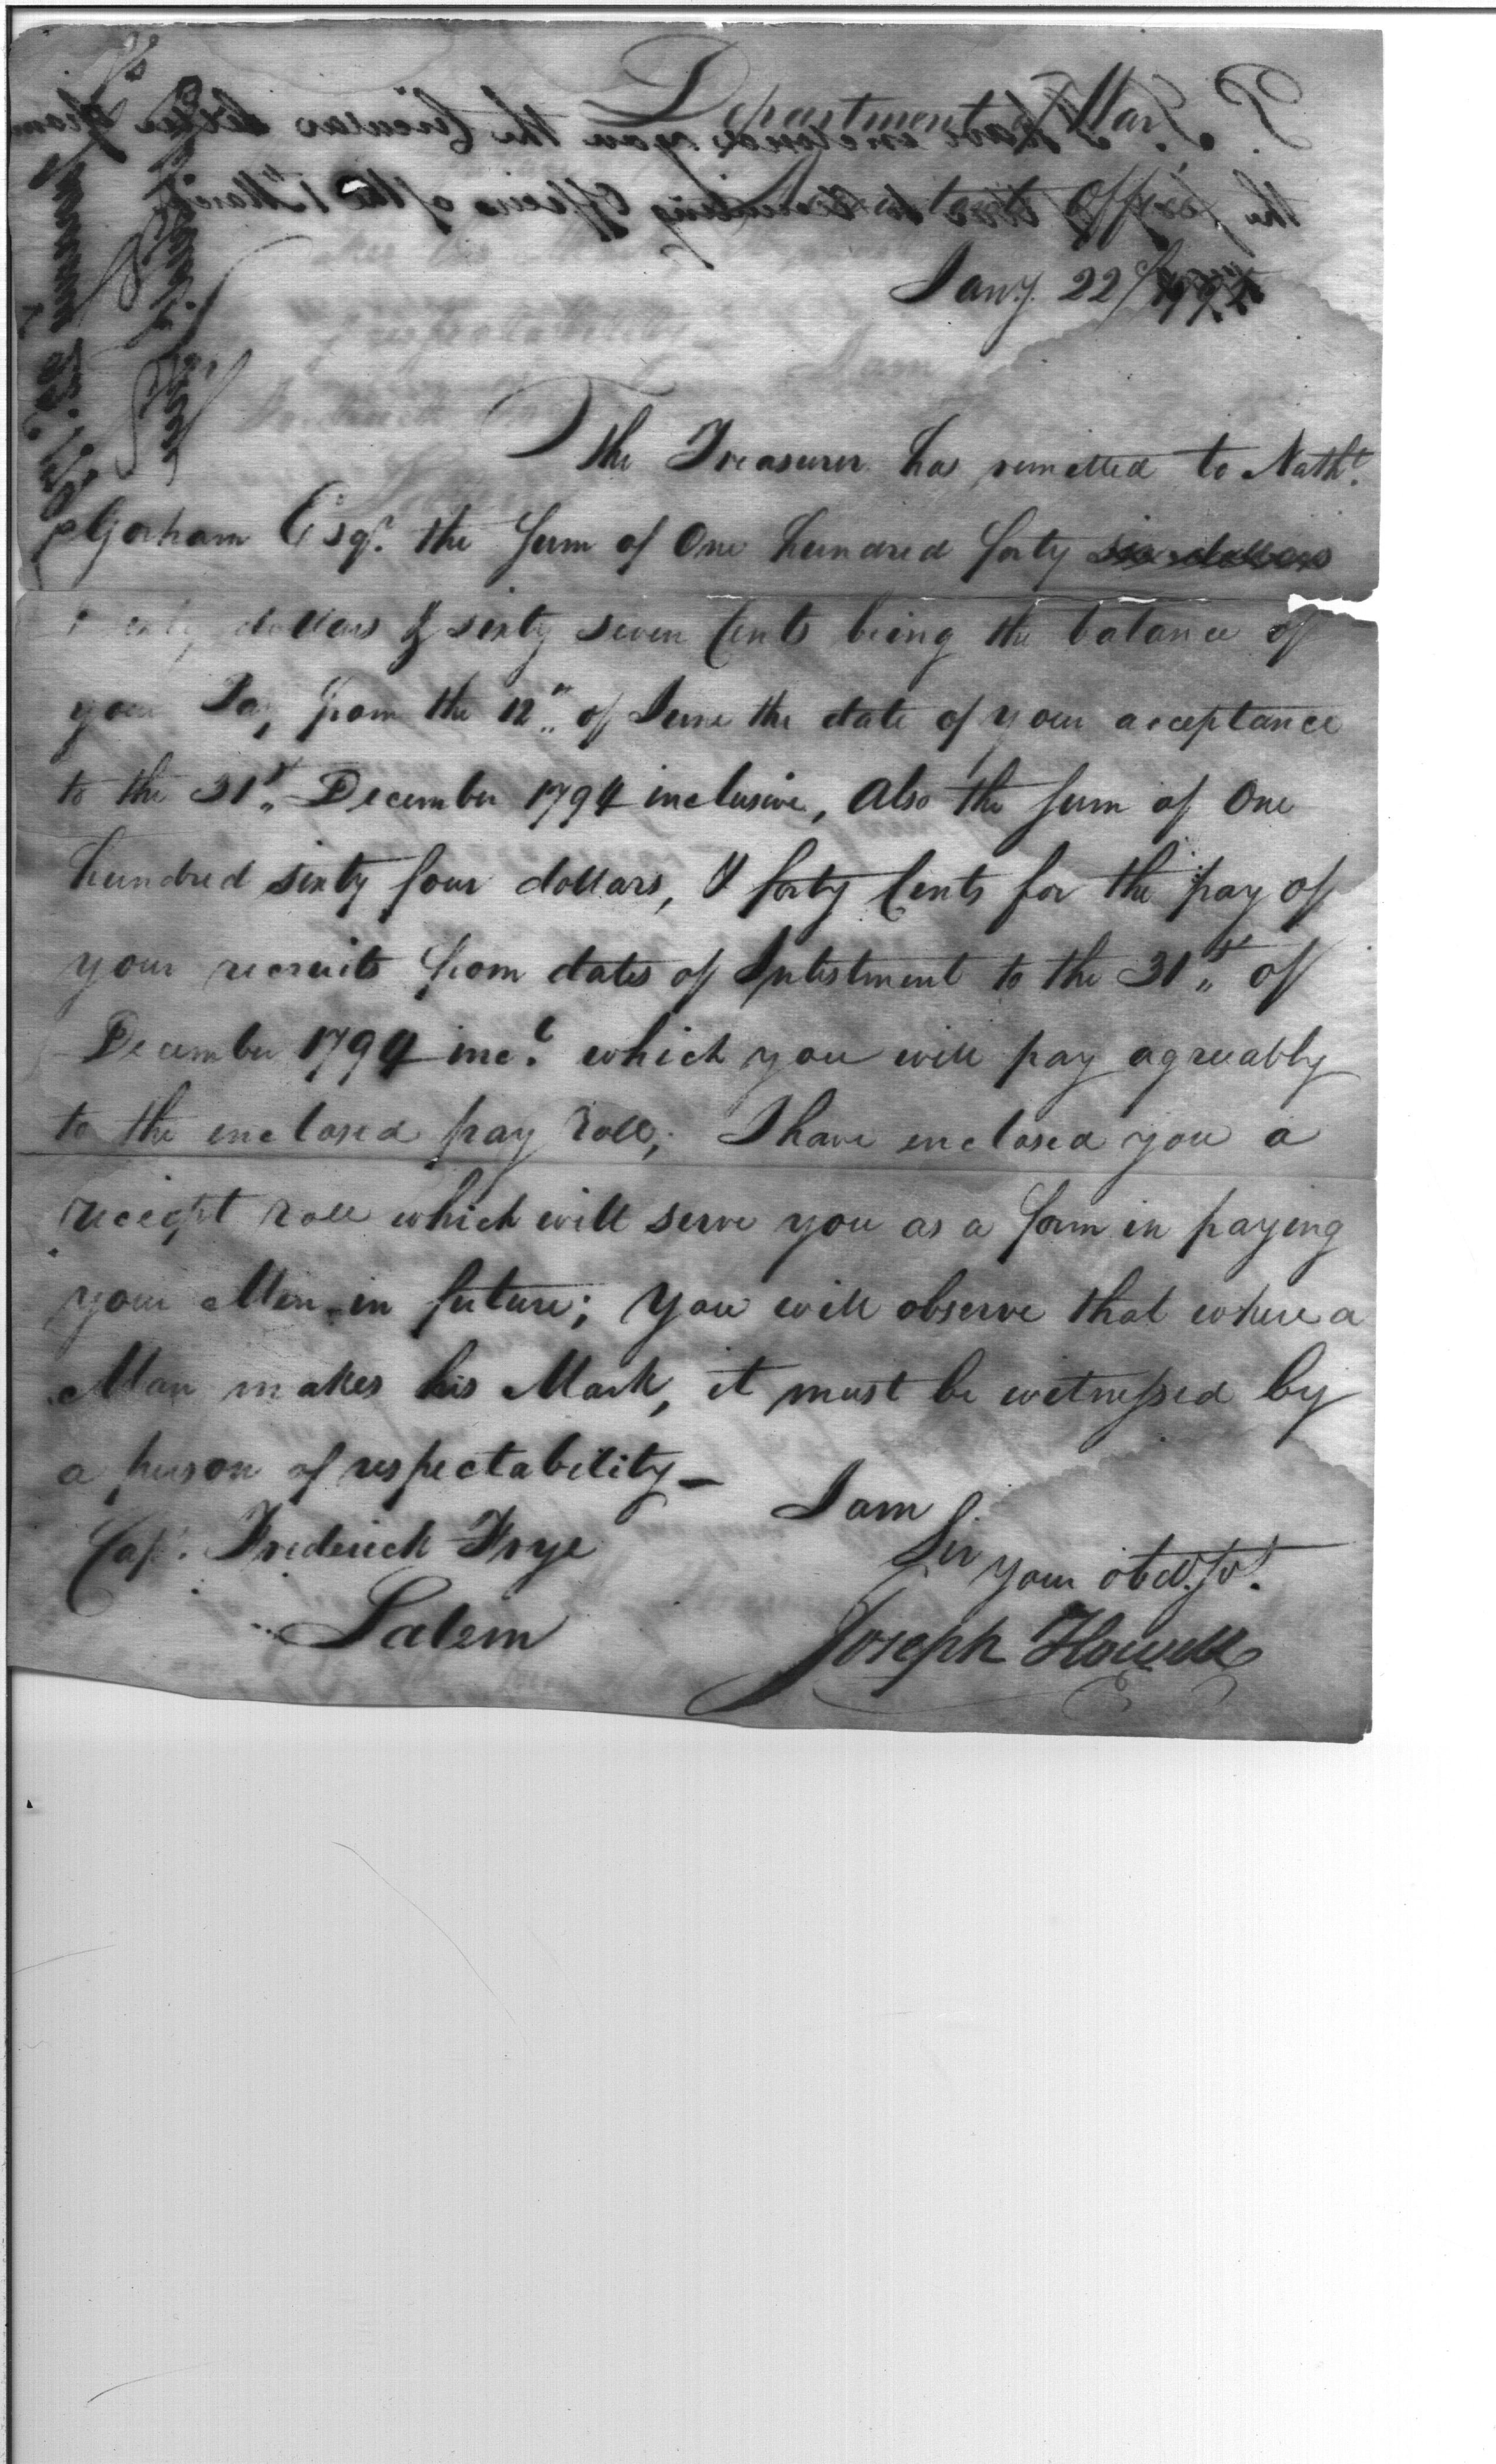 Department of War
Accountants Office
Jany. 22d 1795
The Treasurer has remitted to Nathl.
Gorham Esqr. the sum of One hundred forty six dollars
dollars & sixty seven Cents being the balance of
your Pay, from the 12th of June the date of your acceptance
to the 31st December 1794 inclusive, Also the sum of One
hundred sixty four dollars, & forty Cents for the pay of
your recruits from dates of Inlistment to the 31st of
December 1794 incl. which you will pay agreeably
to the enclosed pay Roll; I have enclosed you a
receipt roll which will serve you as a form in paying
your Men in future; You will observe that where a
Man makes his Mark, it must be witnessed by
a person of respectability—
I am
Sir
your obed. Svt.
Joseph Howell
Capt. Frederick Frye
Salem
P.S. I have enclosed you the Circular letter from
the to Recruiting Officers of the 1st March